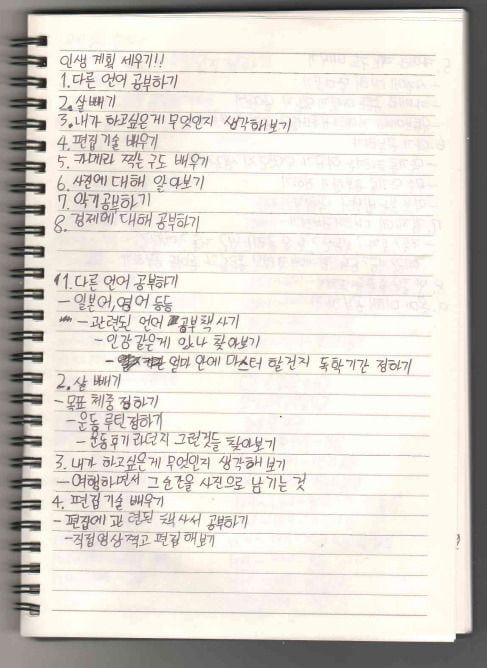 인생 계획 세우기!!
1. 다른 언어 공부하기
2. 살 빼기
3. 내가 하고싶은게 무엇인지 생각해보기
4. 편집 기술 배우기
5. 카메라 찍는 구도 배우기
6. 사진에 대해 알아보기
7. 악기공부하기
8. 경제에 대해 공부하기
1. 다른 언어 공부하기
- 일본어, 영어 등등
- 관련된 언어 공부 책 사기
- 인강 같은게 있나 찾아보기
- 얼마 안에 마스터 할건지 독학기간 정하기
2. 살 빼기
- 목표 체중 정하기
- 운동 루틴정하기
- 운동무기라던지 그런것들 찾아보기
3. 내가 하고싶은게 무엇인지 생각해보기
- 여행하면서 그 순간을 사진으로 남기는 것
4. 편집 기술 배우기
- 편집에 관련된 책 사서 공부하기
- 직접영상찍고 편집해보기